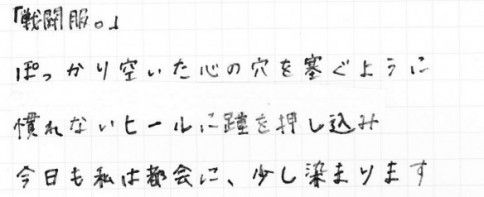 「戦闘服。」
ぽっかり空いた心の穴を塞ぐように
慣れないヒールに踵を押し込み
今日も私は都会に、少し染まります